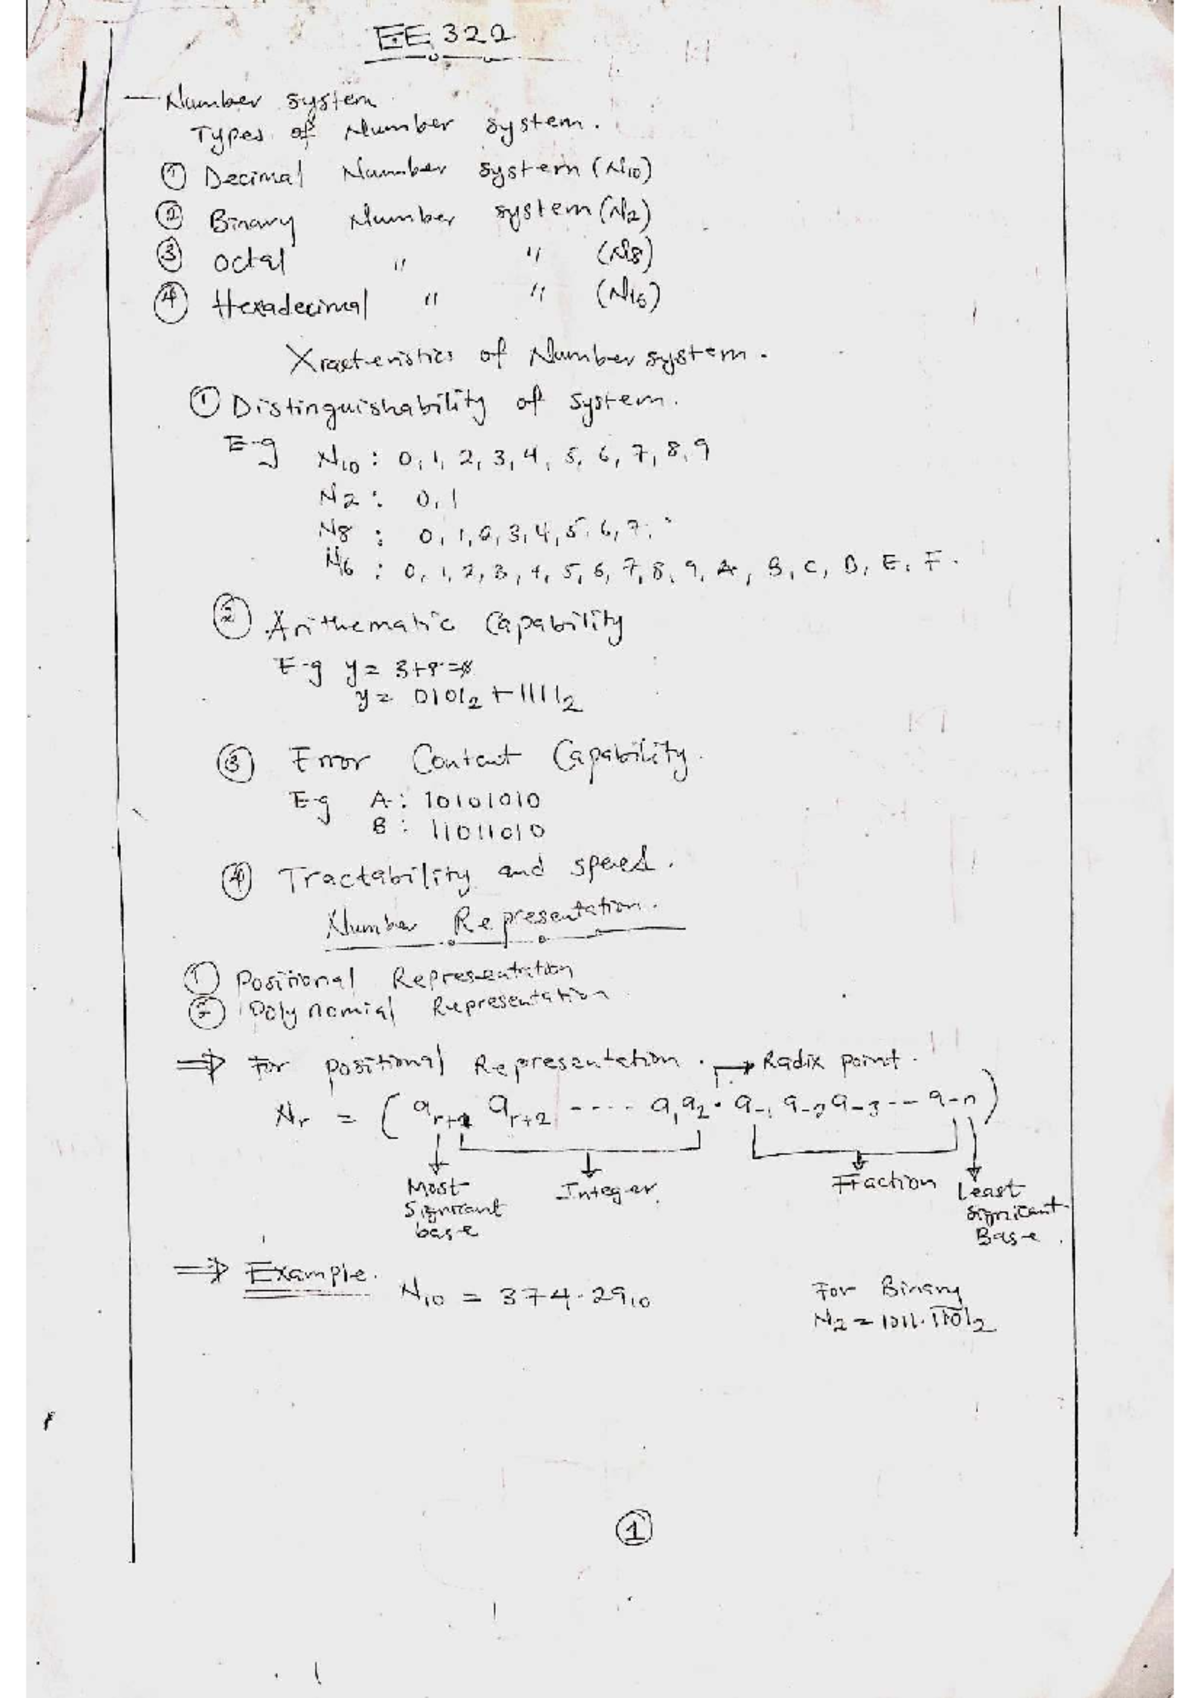 EE 322
— Number system
Types of Number system.
① Decimal Number system (N10)
② Binary Number system (N2)
③ Octal " " (N8)
④ Hexadecimal " " (N16)
Xracteristics of Number system.
① Distinguishability of system.
E-g N10 : 0, 1, 2, 3, 4, 5, 6, 7, 8, 9
N2 : 0, 1
N8 : 0, 1, 2, 3, 4, 5, 6, 7.
N16 : 0, 1, 2, 3, 4, 5, 6, 7, 8, 9, A, B, C, D, E, F.
② Arithematic Capability
E-g y = 3+8
y = 0101₂ + 1111₂
③ Error Content Capability.
E-g A : 10101010
B : 11011010
④ Tractability and speed.
Number Representation.
① Positional Representation
② Polynomial Representation
⇒ For positional Representation. → Radix point.
Nr = (ar+1 ar+2 ---- a1 a2 . a-1 a-2 a-3 -- a-n)
Most Integer Fraction Least
Signicant Signicant
base Base.
⇒ Example.
N10 = 374.29₁₀ For Binary
N2 = 1011.1101₂
①